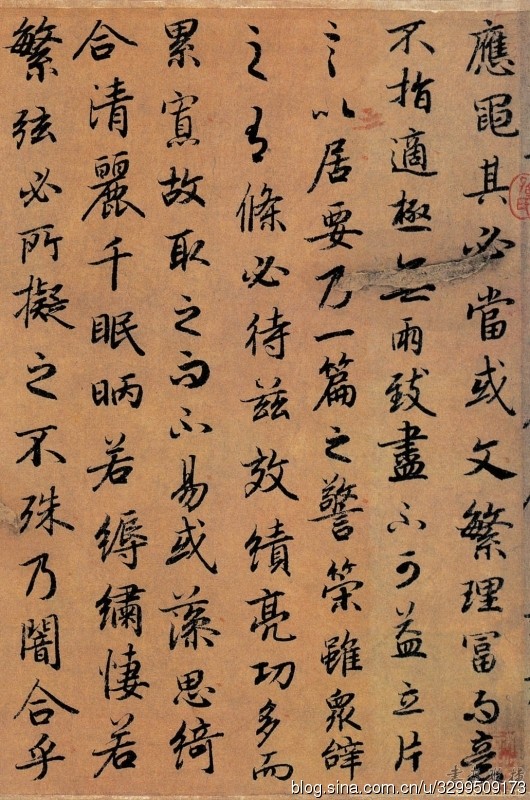 應繩其必當或文繁理富而意
不指適極無兩致盡不可益立片
言以居要乃一篇之警策雖眾辭
之有條必待茲效績亮功多而
累寡故取之而不易或藻思綺
合清麗千眠昞若縟繡悽若
繁弦必所擬之不殊乃闇合乎
blog.sina.com.cn/u/3299509173